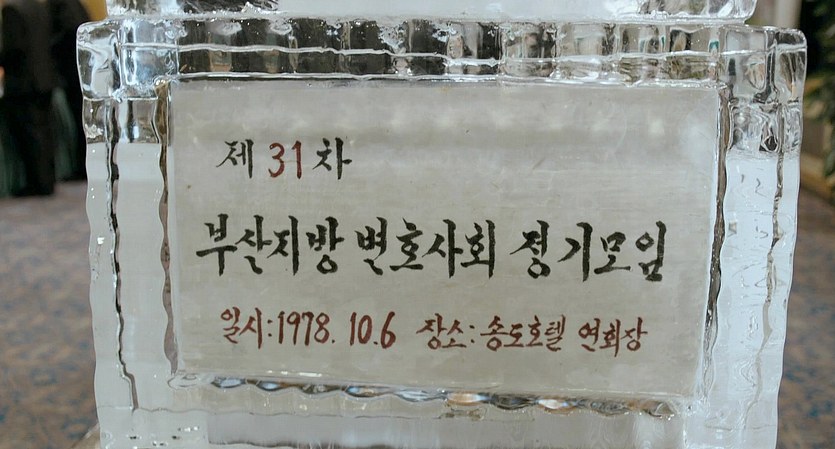 제 31 차
부산지방 변호사회 정기모임
일시:1978. 10.6 장소:송도호텔 연회장